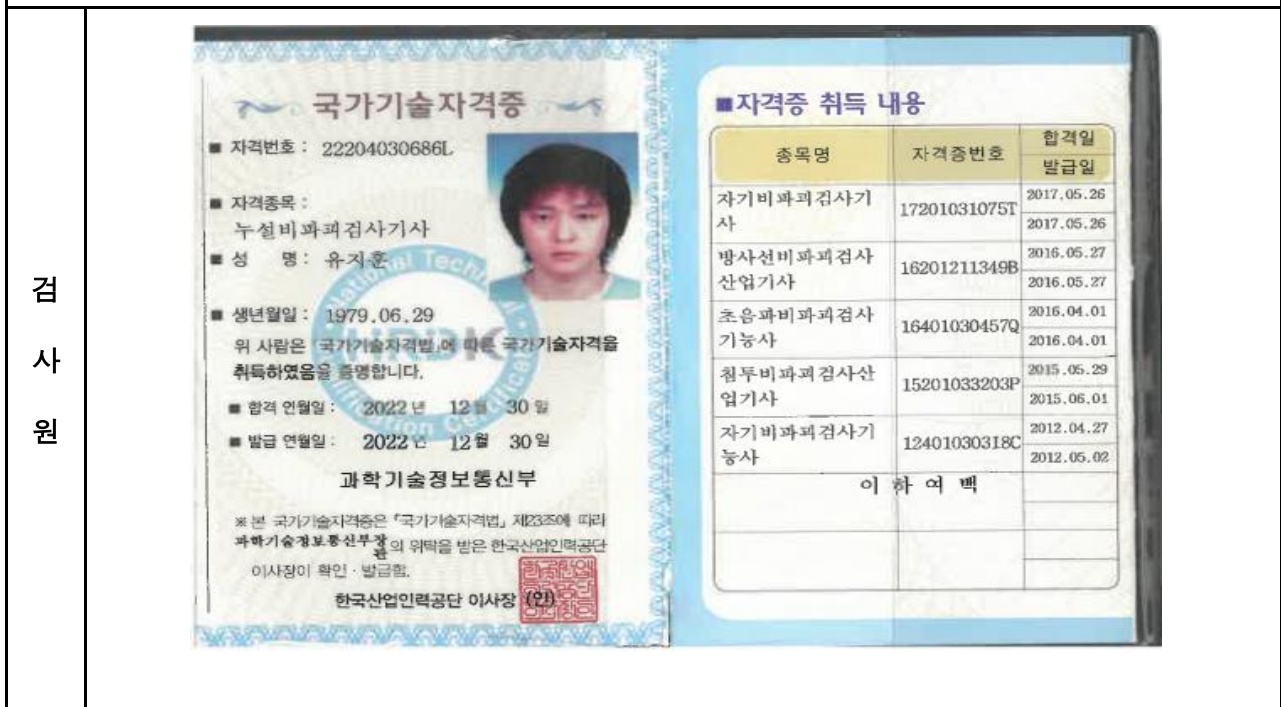 검
사
원
국가기술자격증
■ 자격번호 : 22204030686L
■ 자격종목 :
누설비파괴검사기사
■ 성 명 : 유지훈
■ 생년월일 : 1979.06.29
위 사람은 국가기술자격법에 따른 국가기술자격을
취득하였음을 증명합니다.
■ 합격 연월일 : 2022 년 12 월 30 일
■ 발급 연월일 : 2022 년 12 월 30 일
과학기술정보통신부
※ 본 국가기술자격증은 「국가기술자격법」 제23조에 따라
과학기술정보통신부장관의 위탁을 받은 한국산업인력공단
이사장이 확인 · 발급함.
한국산업인력공단 이사장 (인)
■자격증 취득 내용
종목명 자격증번호 합격일
발급일
자기비파괴검사기사 17201031075T 2017.05.26
2017.05.26
방사선비파괴검사 산업기사 16201211349B 2016.05.27
2016.05.27
초음파비파괴검사 기능사 16401030457Q 2016.04.01
2016.04.01
침투비파괴검사산업기사 15201033203P 2015.05.29
2015.06.01
자기비파괴검사기능사 12401030318C 2012.04.27
2012.05.02
이 하 여 백